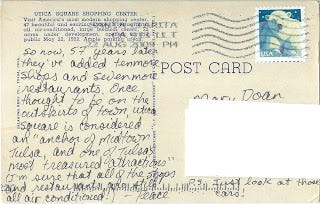 UTICA SQUARE SHOPPING CENTER
Visit America's most modern shopping center.
47 beautiful and exciting
air conditioned, large
zones under development,
public May 22, 1952. Ample parking
So now, 57 years later
they've added ten more
shops and seven more
restaurants. Once
thought to be on the
outskirts of town, Utica
Square is considered
an "anchor of midtown
Tulsa, and one of Tulsa's
most treasured attractions"
I'm sure that all of the shops
and restaurants are still
all air conditioned! Peace
22 AUG 2009 PM
USA
POST CARD
Mary Doan
PS. Just look at those
cars!